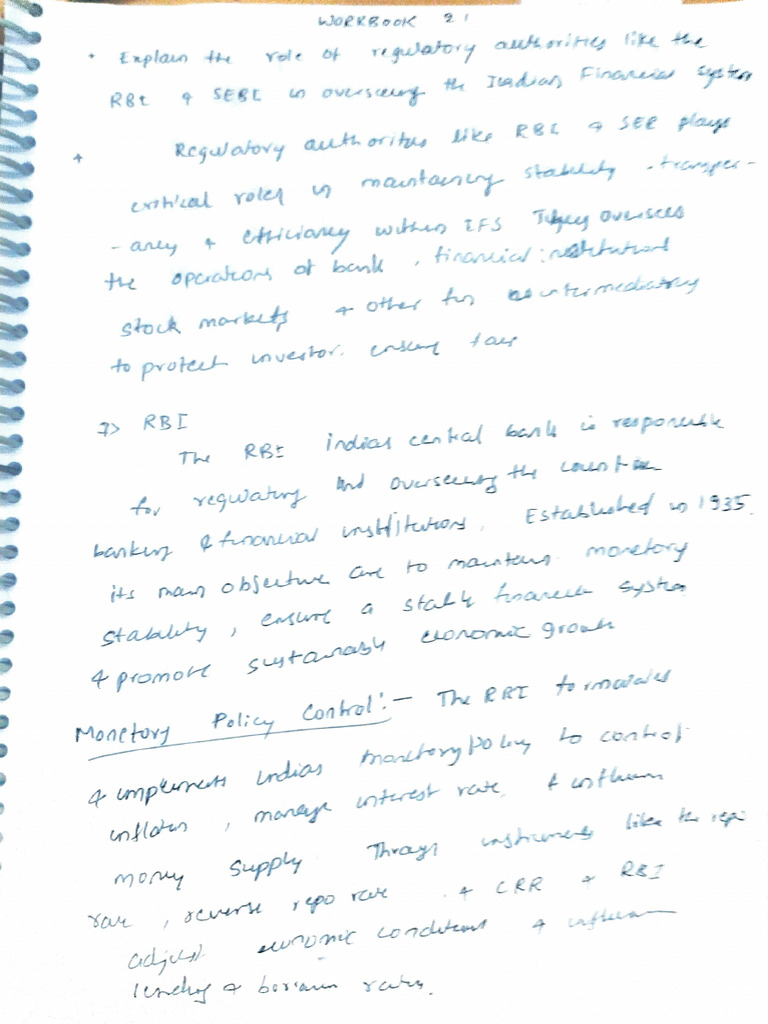 WORKBOOK 21
• Explain the role of regulatory authorities like the
RBI & SEBI in overseeing the Indian Financial system
+ Regulatory authorities like RBI & SEB plays
critical roles in maintaining stability transper-
- ancy & efficiancy within IFS They oversees
the operations of bank, financial institutions
stock markets & other fin intermediatary
to protect investor. ensure fair
1> RBI
The RBI indias central bank is responsible
for regulating and overseeing the countries
banking & financial institutions. Established in 1935.
its main objective are to maintain monetory
stability, ensure a stable financial system
& promote sustainable economic growth
Monetory Policy Control :- The RBI formulates
& implements Indias monetory policy to control
inflation, manage interest rate, & influence
money supply Through instruments like the repo
rate, reverse repo rate & CRR & RBI
adjust economic conditions & influence
lending & borrowing rates.